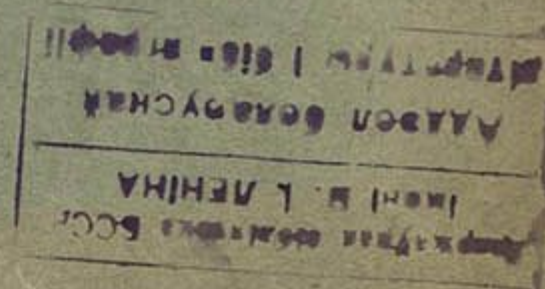 Дзяржаўная бібліятэка БССР
імені В. І. ЛЕНІНА
Аддзел беларускай
літаратуры і бібліяграфіі